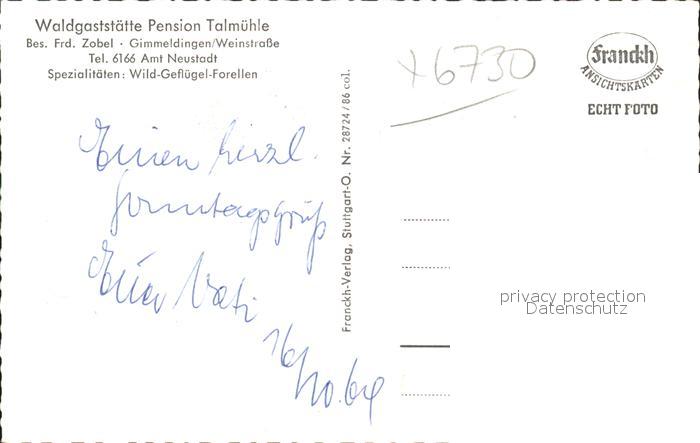 Waldgaststätte Pension Talmühle
Bes. Frd. Zobel · Gimmeldingen/Weinstraße
Tel. 6166 Amt Neustadt
Spezialitäten: Wild-Geflügel-Forellen
Einen herzl.
Sonntagsgruß
Euer Vati
16/10.64
Franckh-Verlag, Stuttgart-O. Nr. 28724/86 col.
x6730
Franckh
ANSICHTSKARTEN
ECHT FOTO
privacy protection
Datenschutz